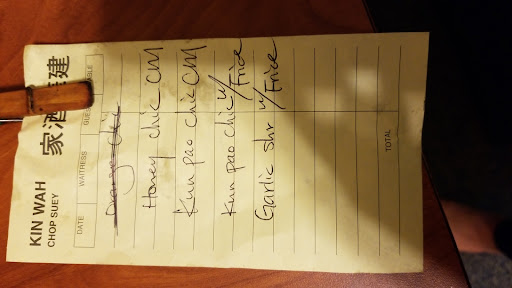 KIN WAH
CHOP SUEY
家酒
建
DATE WAITRESS
Honey chic CM
Kun pao chic CM
Kun pao chic w/ Frice
Garlic shr w/ Frice
TOTAL